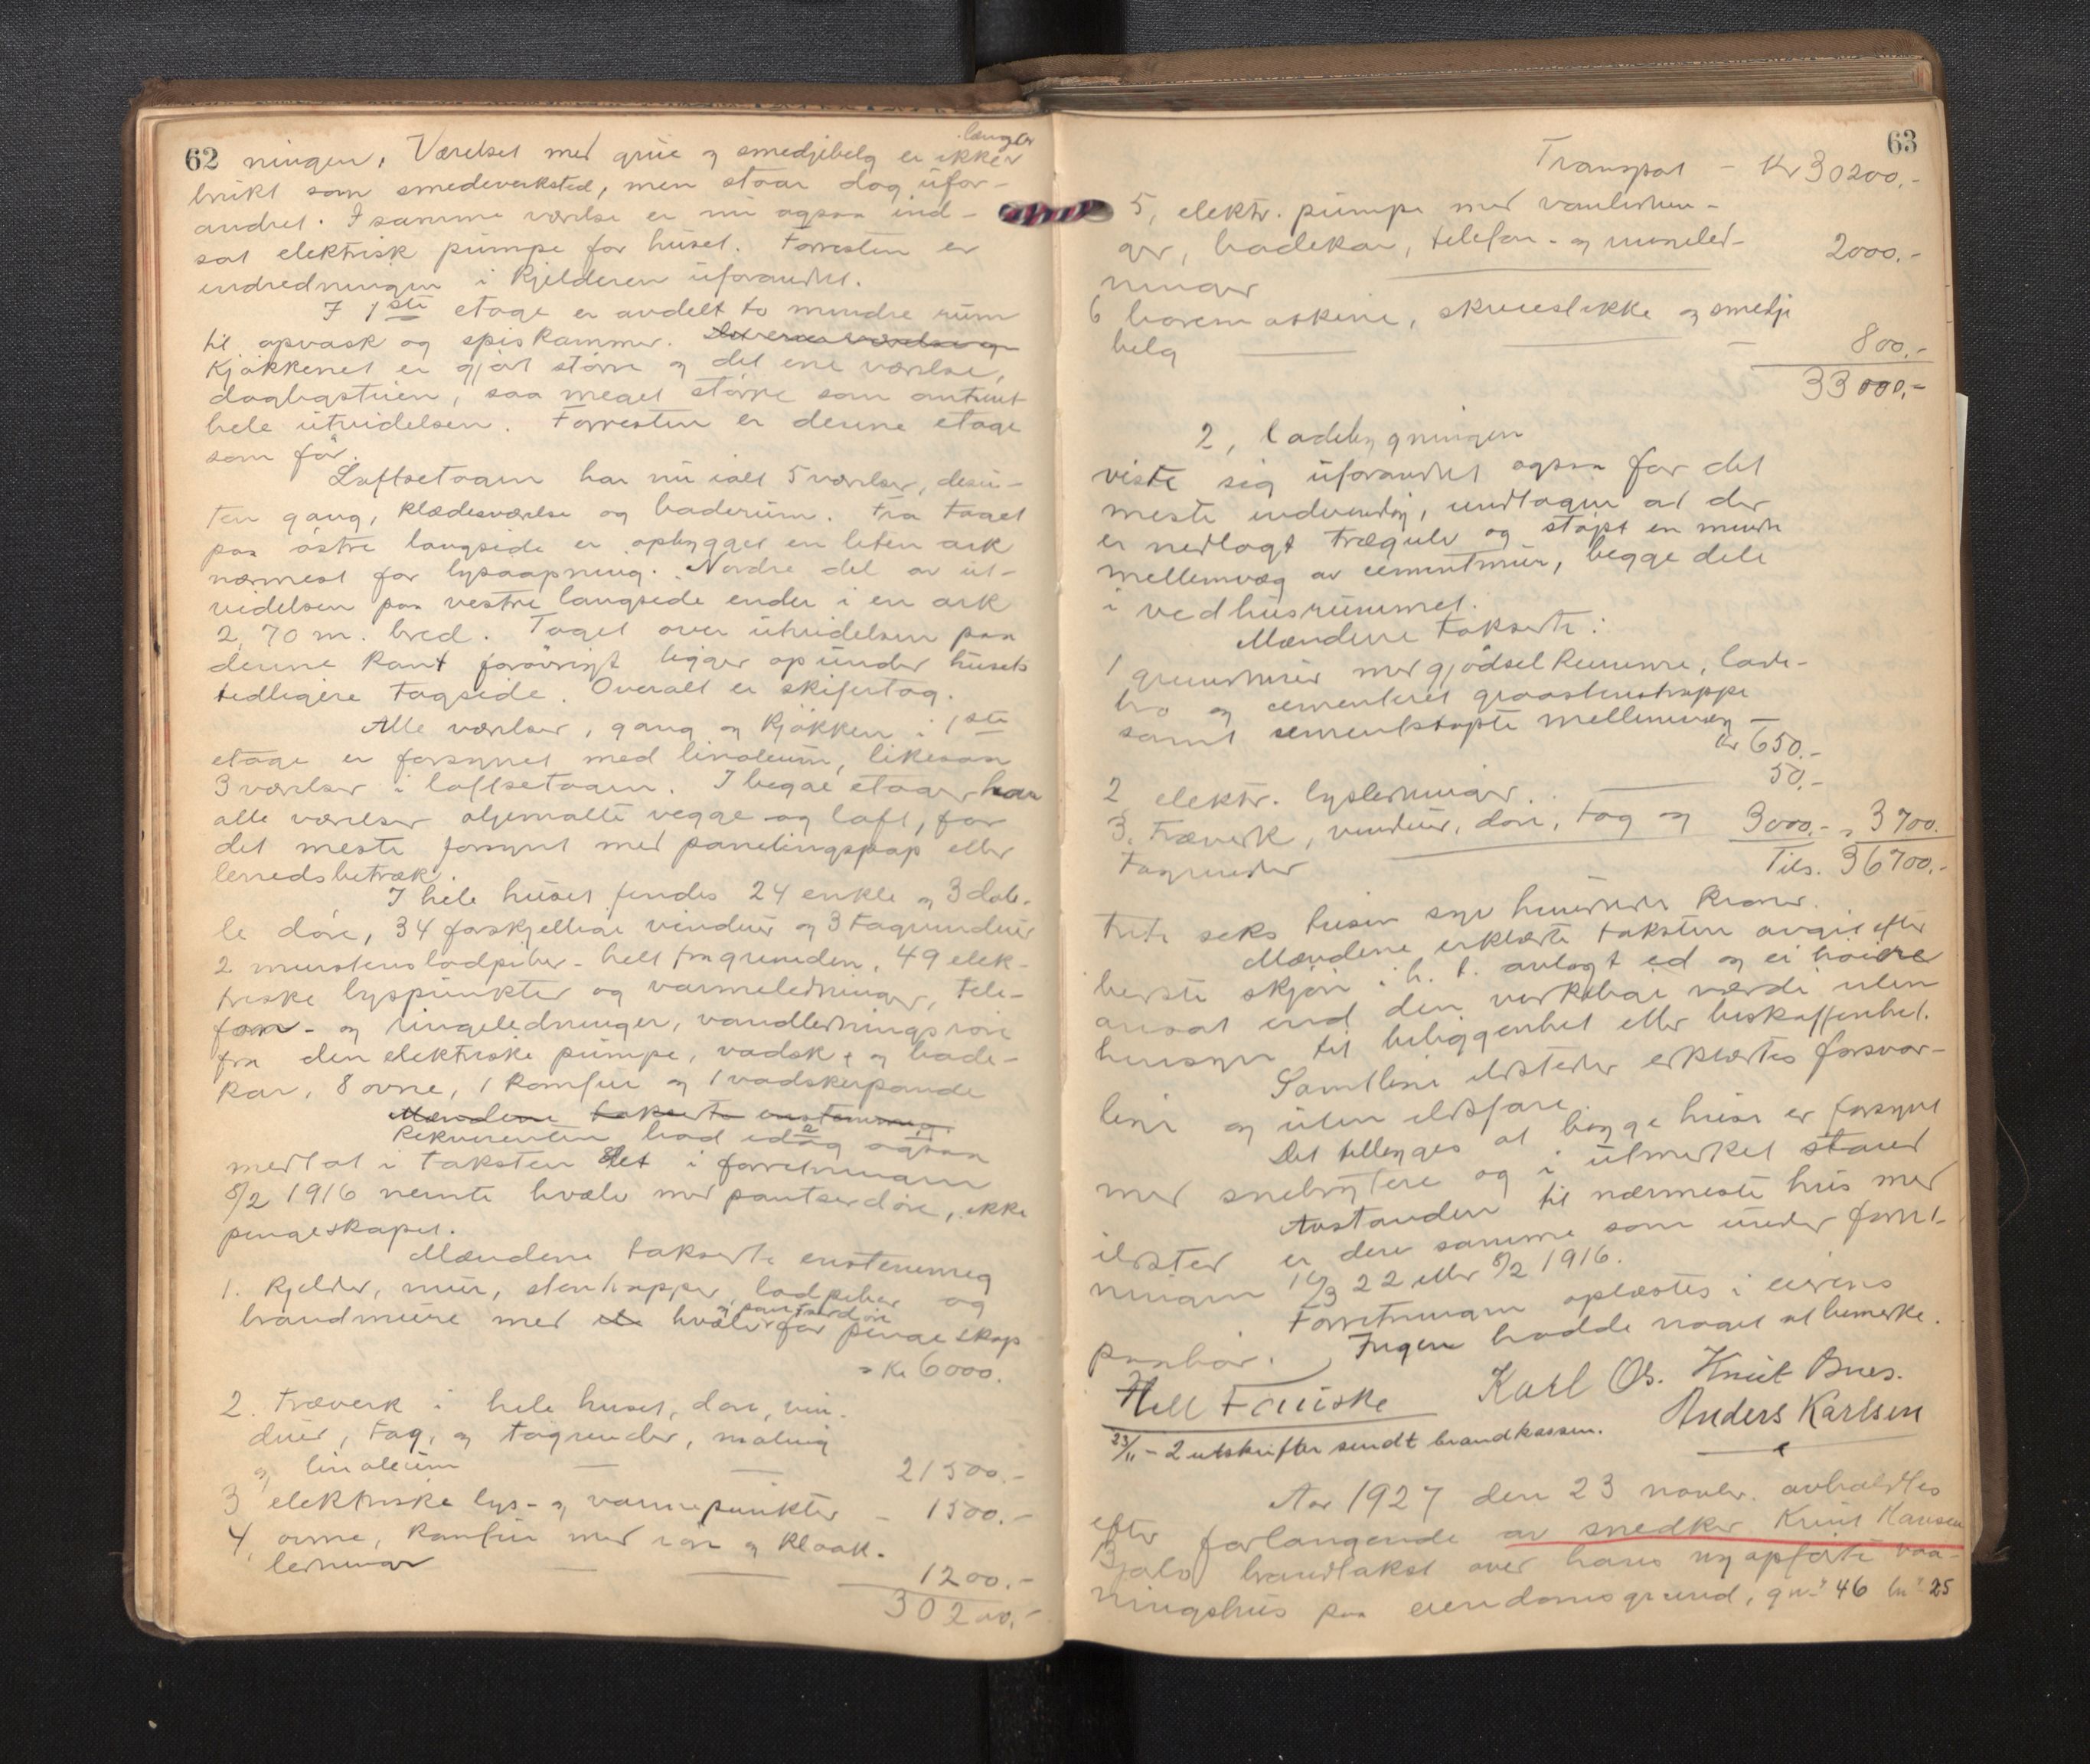 62
længer
ningen. Værelset med grue og smedjebelg er ikke
brukt som smedeverksted, men staar dog ufor-
andret. I samme værelse er nu ogsaa ind-
sat elektrisk pumpe for huset. Forresten er
indredningen i kjelderen uforandret.
I 1ste etage er avdelt to mindre rum
til opvask og spiskammer.
Kjøkkenet er gjort større og det ene værelse,
dagligstuen, saa meget større som omtrent
hele utvidelsen. Forresten er denne etage
som før.
Loftsetagen har nu ialt 5 værelser, desu-
ten gang, klædesværelse og baderum. Fra taget
paa østre langside er opbygget en liten ark
nærmest for lysaapning. Nordre del av ut-
videlsen paa vestre langside ender i en ark
2,70 m. bred. Taget over utvidelsen paa
denne kant forøvrigt ligger op under husets
tidligere tagside. Overalt er skifertag.
Alle værelser, gang og kjøkken i 1ste
etage er forsynet med linoleum, likesaa
3 værelser i loftsetagen. I begge etager har
alle værelser oljemalte vegge og loft, for
det meste forsynt med panelingspap eller
lerredsbetræk.
I hele huset findes 24 enkle og 3 dob-
le døre, 34 forskjellige vinduer og 3 tagvinduer
2 murstenslodpiber - helt fra grunden, 49 elek-
triske lyspunkter og varmeledninger, tele-
fon- og ringeledninger, vandledningsrøre
fra den elektriske pumpe, vadsk, og bade-
kar, 8 ovne, 1 komfur og 1 vadskerpande
Mændene takserte enstemmig.
Rekvirenten bad idag ogsaa
medtat i taksten det i forretningen
8/2 1916 nemte hvælv med pantserdøre, ikke
pengeskapet.
Mændene takserte enstemmig
1. Kjelder, mur, stentrapper, lodpiber og
og pantserdøre
brandmure med hvælv for pengeskap
- Kr 6000.
2. Træverk i hele huset, døre, vin-
duer, tag, og tagrender, maling
og linoleum — — 21500.-
3 elektriske lys- og varmepunkter - 1500.-
4, ovne, komfur med rør og kloak-
ledninger — — 1200.-
30200.-
63
Transport - Kr 30200.-
5, elektr. pumpe med vandlednin-
ger, badekar, telefon- og ringeled-
ninger — 2000.-
6 boremaskine, skruestikke og smedje
belg — — — 800.-
33000.-
2, ladebygningen
viste sig uforandret ogsaa for det
meste indvendig, undtagen at der
er nedlagt trægulv og støpt en mindre
mellemvæg av cementmur, begge dele
i vedhusrummet.
Mændene takserte:
1 grundmur med gjødselkummer, lade-
bro og cementeret graastenstrappe
samt sementstøpte mellemvæg —
Kr 650.-
2 elektr. lysledninger. — 50.-
3. Træverk, vinduer, døre, tag og
tagrender — 3000.- - 3700.
Tils. 36700.-
Treti seks tusen syv hundrede kroner.
Mændene erklærte taksten avgit efter
bedste skjøn i h. t. avlagt ed og ei høiere
ansat end den virkelige værdi uten
hensyn til beliggenhet eller beskaffenhet.
Samtlige ildsteder erklærtes forsvar-
lige og uten ildsfare.
Det tillægges at begge huse er forsynt
med snebrytere og i utmerket stand
Avstanden til nærmeste hus med
ildsted er den samme som under forret-
ningen 16/3 22 eller 8/2 1916.
Forretningen oplæstes i eierens
paahør. Ingen hadde noget at bemerke.
Karl Os. Knut Bues.
Anders Karlsen
23/11 - 2 utskrifter sendt brandkassen.
Aar 1927 den 23 novbr. avholdtes
efter forlangende av snedker Knut Hansen
brandtakst over hans nyopførte vaa-
ningshus paa eiendomsgrund, gnr 46 bnr 25